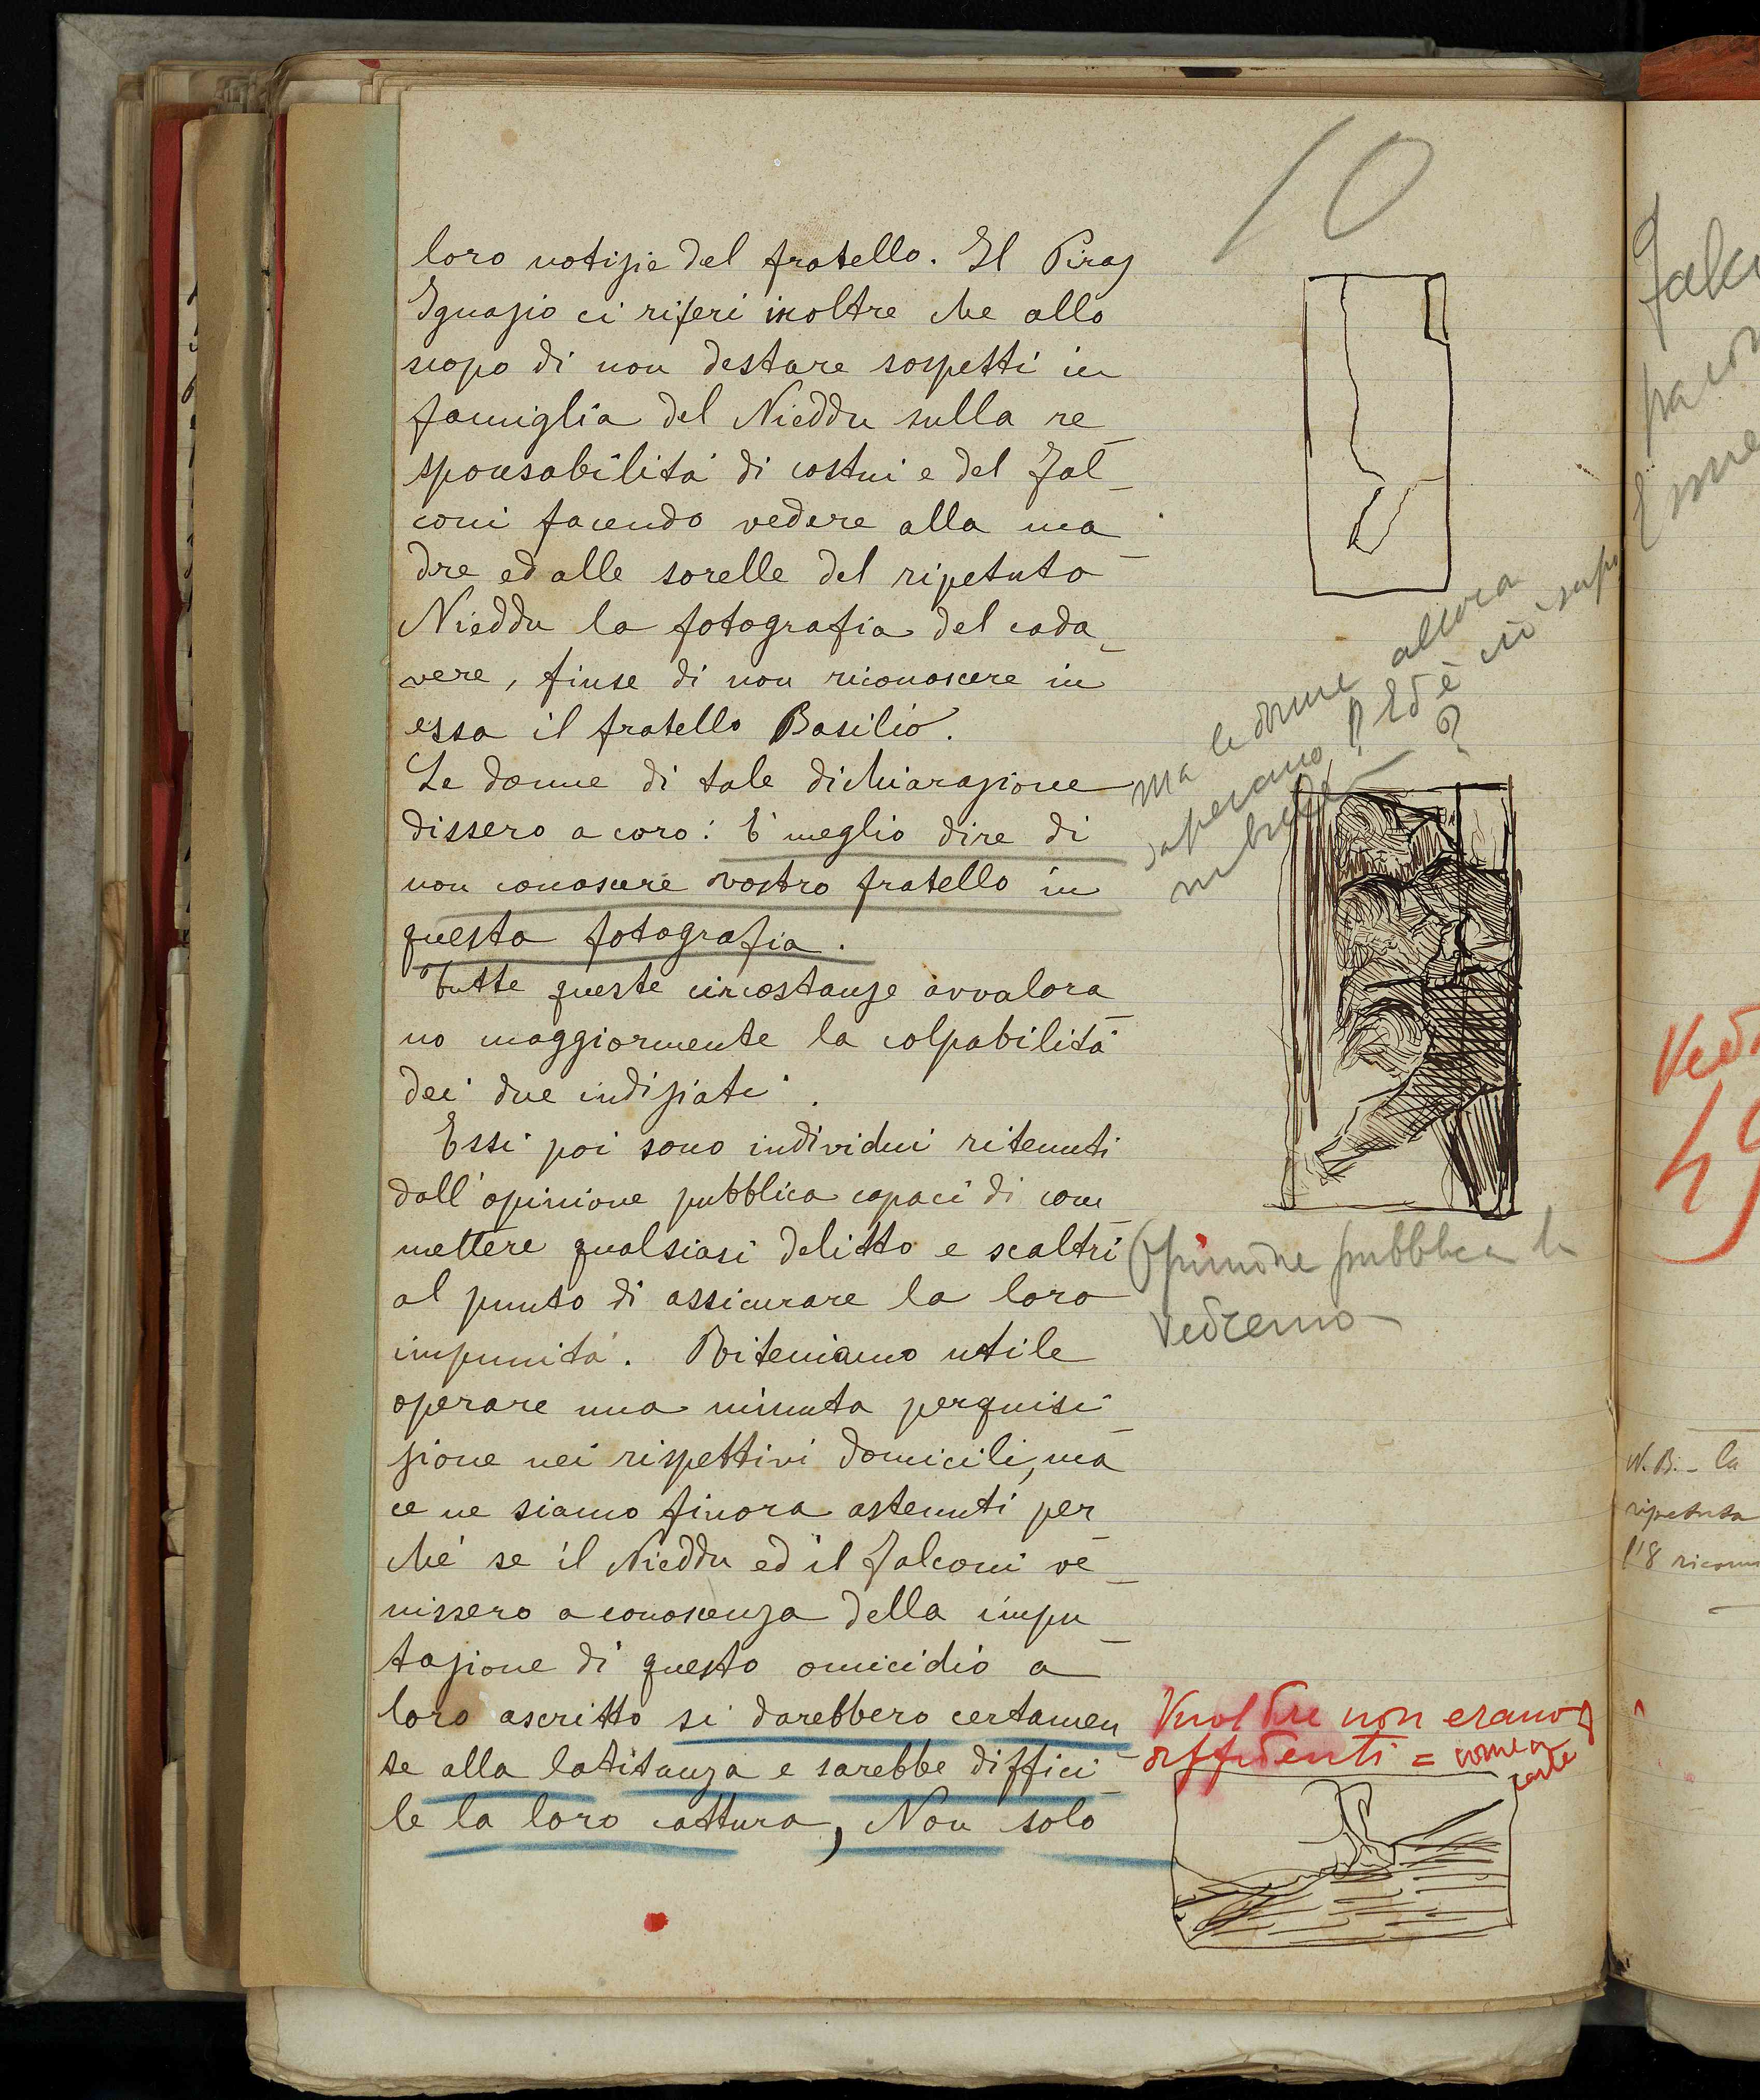 10
loro notizie del fratello. Il Piras
Ignazio ci riferì inoltre che allo
scopo di non destare sospetti in
famiglia del Nieddu sulla re_
sponsabilità di costui e del Fal_
coni facendo vedere alla ma_
dre ed alle sorelle del ripetuto
Nieddu la fotografia del cada_
vere, finse di non riconoscere in
essa il fratello Basilio.
Le donne di tale dichiarazione
dissero a coro: È meglio dire di
non conoscere vostro fratello in
questa fotografia.
Tutte queste circostanze avvalora_
no maggiormente la colpabilità
dei due indiziati.
Essi poi sono individui ritenuti
dall'opinione pubblica capaci di com_
mettere qualsiasi delitto e scaltri
al punto di assicurare la loro
impunità. Riteniamo utile
operare una minuta perquisi_
zione nei rispettivi domicili, ma
ce ne siamo finora astenuti per_
ché se il Nieddu ed il Falconi ve_
nissero a conoscenza della impu_
tazione di questo omicidio a
loro ascritto si darebbero certamen_
te alla latitanza e sarebbe diffici_
le la loro cattura, Non solo
Ma le donne allora
sapevano? Ed è ciò
?
Opinione pubblica la
vedremo
Inoltre non erano
diffidenti = come a
carte
Vedi
49
N.B. - la
ripetuta
l'8